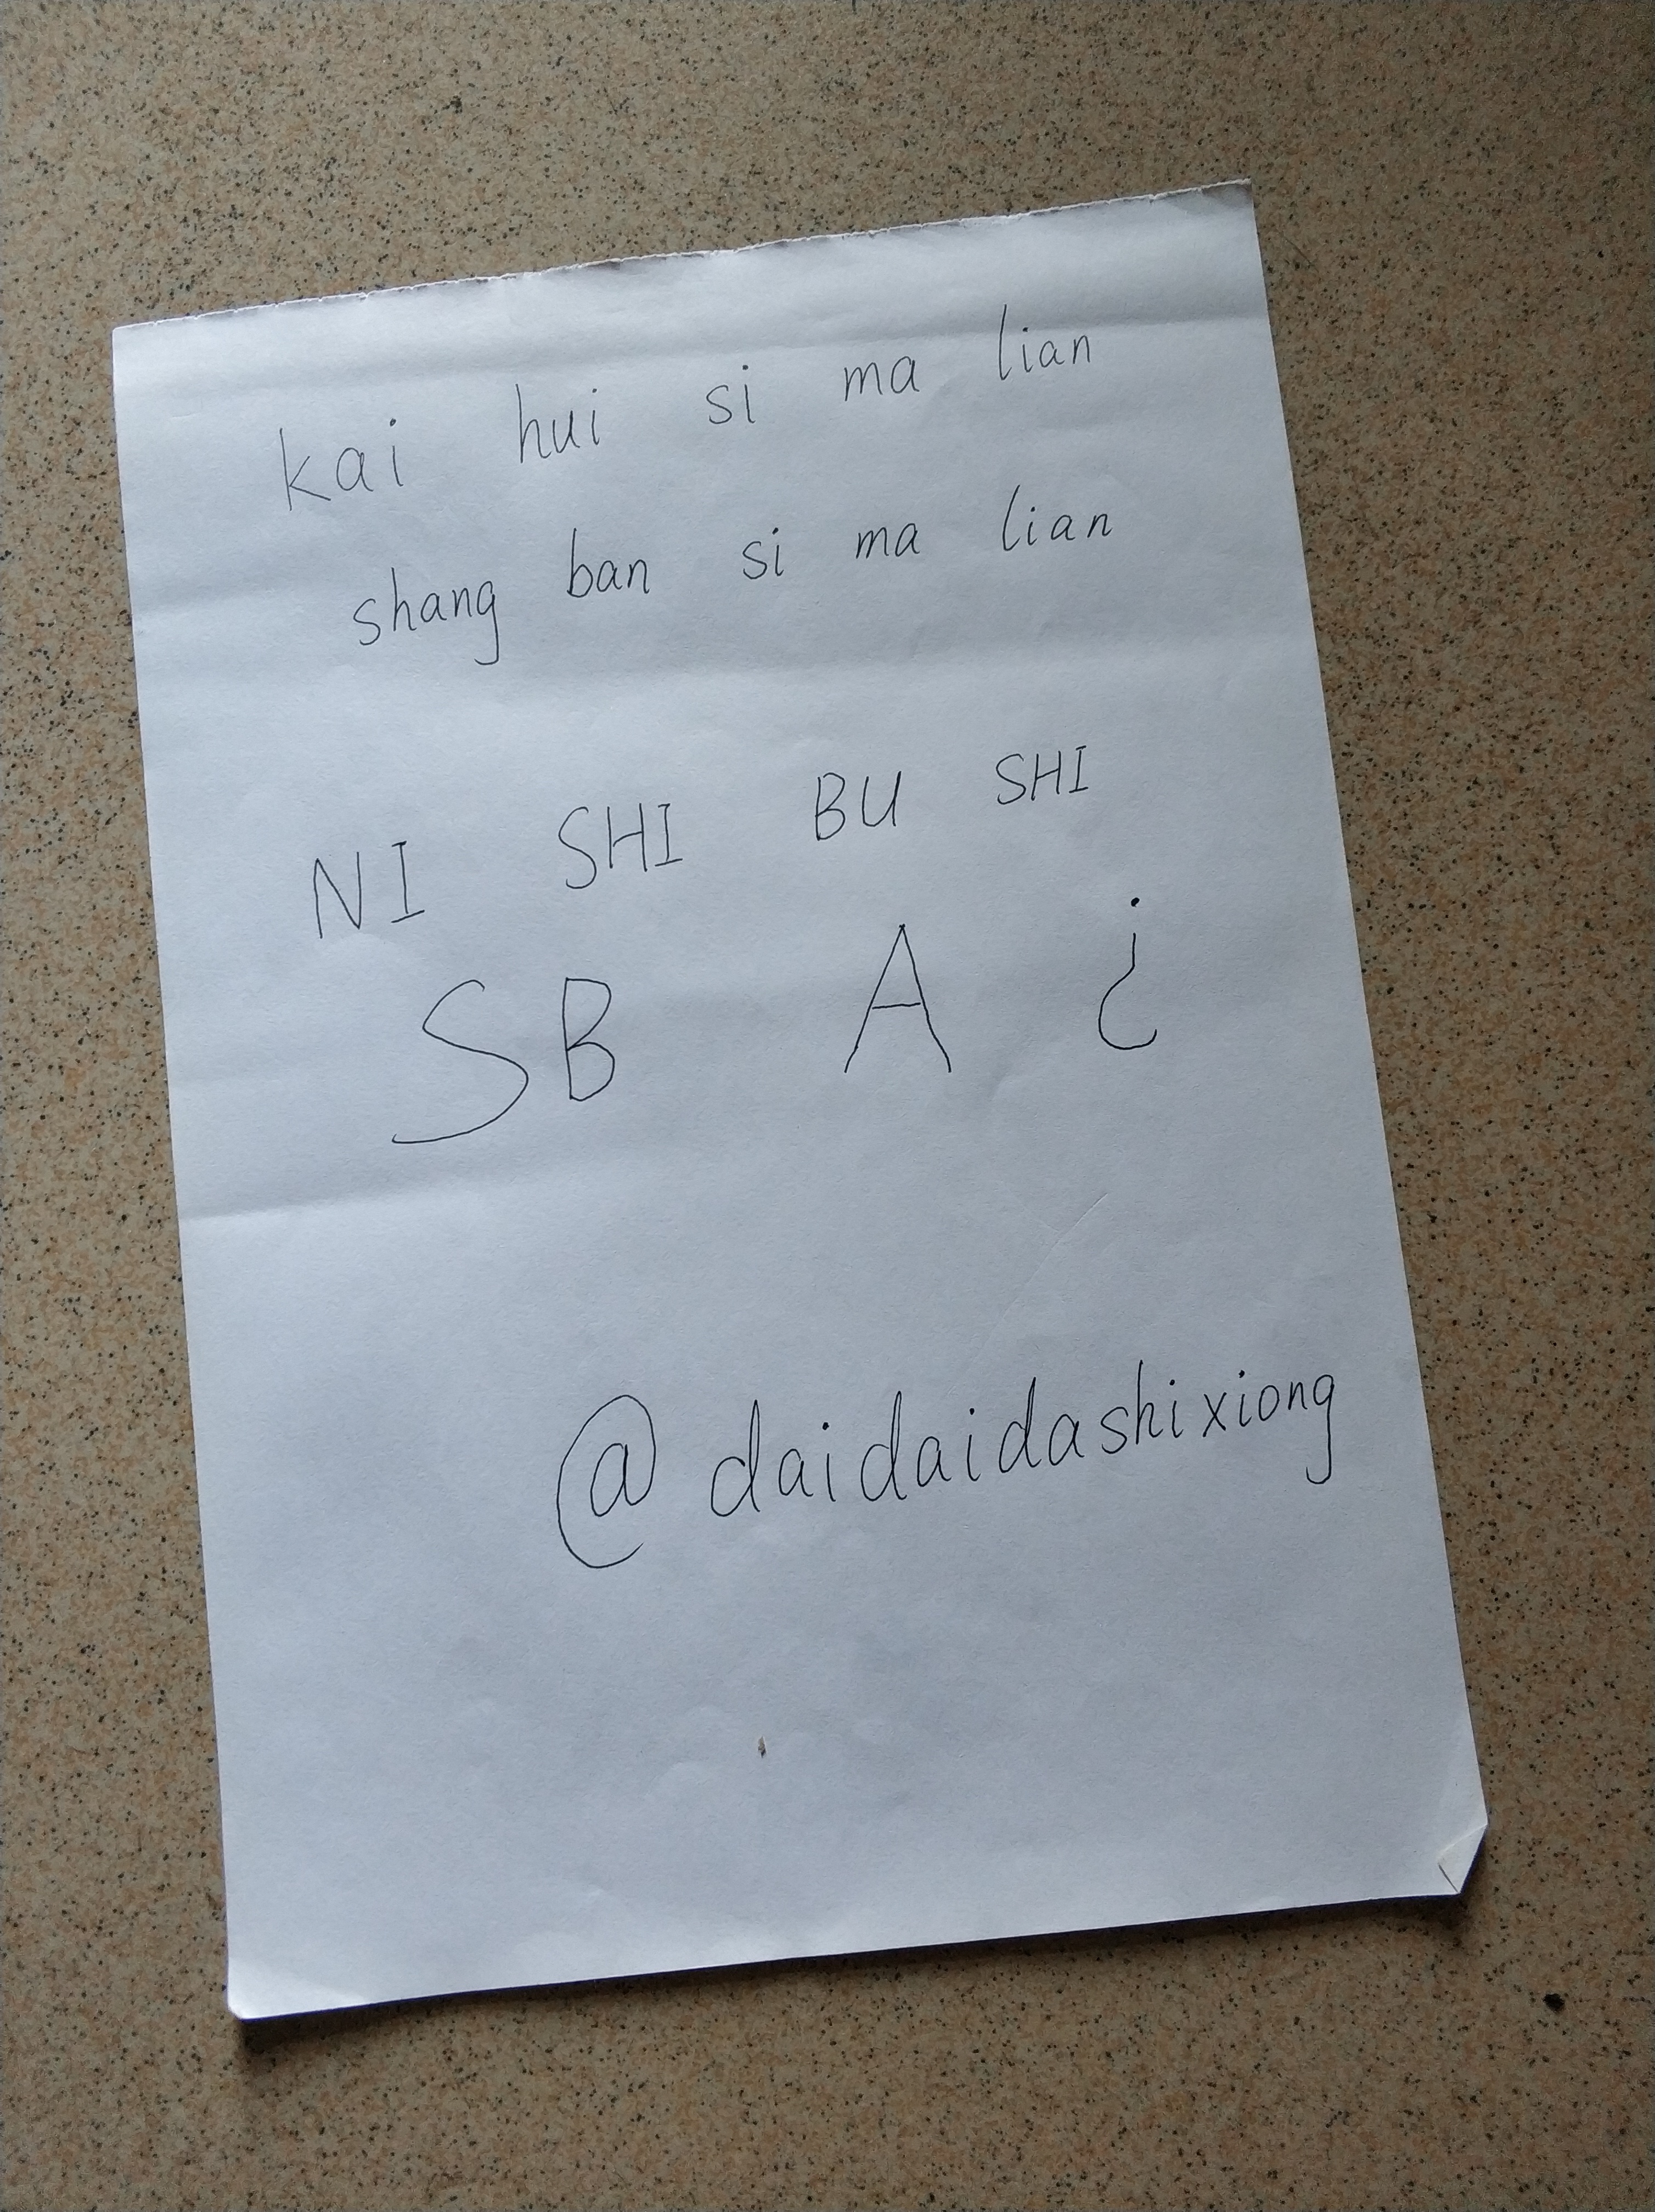 kai hui si ma lian
shang ban si ma lian
NI SHI BU SHI
SB A ¿
@daidaidashixiong